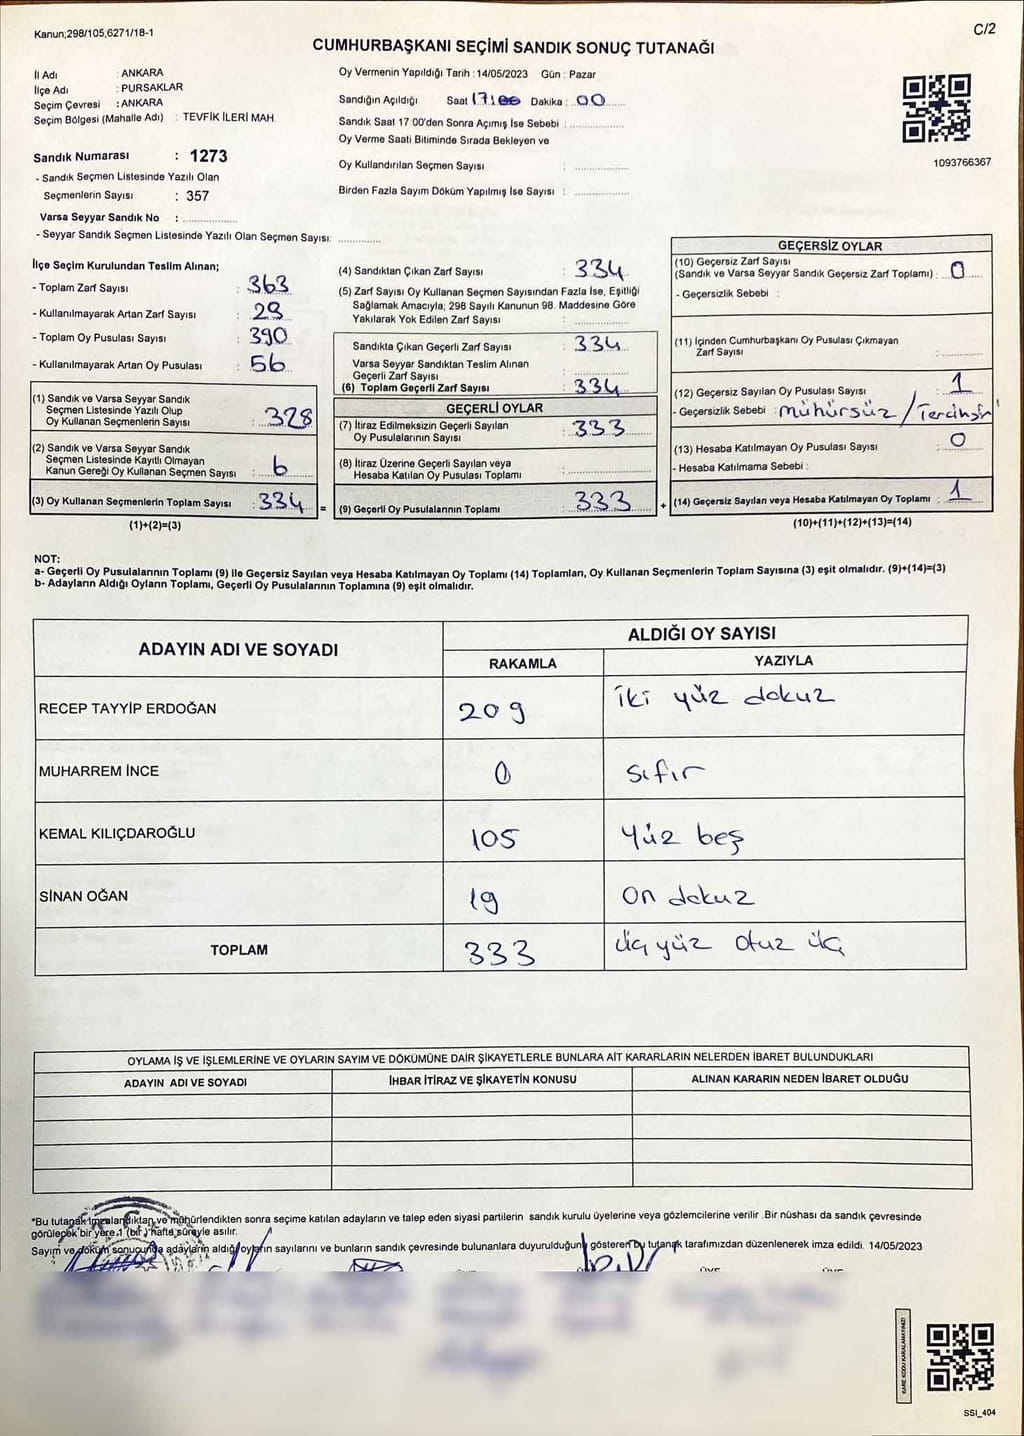 Kanun;298/105,6271/18-1
C/2
CUMHURBAŞKANI SEÇİMİ SANDIK SONUÇ TUTANAĞI
İl Adı : ANKARA
İlçe Adı : PURSAKLAR
Seçim Çevresi : ANKARA
Seçim Bölgesi (Mahalle Adı) : TEVFİK İLERİ MAH.
Sandık Numarası : 1273
- Sandık Seçmen Listesinde Yazılı Olan
Seçmenlerin Sayısı : 357
Varsa Seyyar Sandık No :
- Seyyar Sandık Seçmen Listesinde Yazılı Olan Seçmen Sayısı:
Oy Vermenin Yapıldığı Tarih : 14/05/2023 Gün : Pazar
Sandığın Açıldığı Saat 17:00 Dakika : 00
Sandık Saat 17 00'den Sonra Açımış İse Sebebi :
Oy Verme Saati Bitiminde Sırada Bekleyen ve
Oy Kullandırılan Seçmen Sayısı :
Birden Fazla Sayım Döküm Yapılmış İse Sayısı :
1093766367
İlçe Seçim Kurulundan Teslim Alınan;
- Toplam Zarf Sayısı : 363
- Kullanılmayarak Artan Zarf Sayısı : 29
- Toplam Oy Pusulası Sayısı : 390
- Kullanılmayarak Artan Oy Pusulası : 56
(1) Sandık ve Varsa Seyyar Sandık
Seçmen Listesinde Yazılı Olup
Oy Kullanan Seçmenlerin Sayısı : 328
(2) Sandık ve Varsa Seyyar Sandık
Seçmen Listesinde Kayıtlı Olmayan
Kanun Gereği Oy Kullanan Seçmen Sayısı : 6
(3) Oy Kullanan Seçmenlerin Toplam Sayısı : 334 =
(1)+(2)=(3)
(4) Sandıktan Çıkan Zarf Sayısı : 334
(5) Zarf Sayısı Oy Kullanan Seçmen Sayısından Fazla İse, Eşitliği
Sağlamak Amacıyla; 298 Sayılı Kanunun 98. Maddesine Göre
Yakılarak Yok Edilen Zarf Sayısı :
Sandıkta Çıkan Geçerli Zarf Sayısı : 334
Varsa Seyyar Sandıktan Teslim Alınan
Geçerli Zarf Sayısı :
(6) Toplam Geçerli Zarf Sayısı : 334
GEÇERLİ OYLAR
(7) İtiraz Edilmeksizin Geçerli Sayılan
Oy Pusulalarının Sayısı : 333
(8) İtiraz Üzerine Geçerli Sayılan veya
Hesaba Katılan Oy Pusulası Toplamı :
(9) Geçerli Oy Pusulalarının Toplamı : 333 +
GEÇERSİZ OYLAR
(10) Geçersiz Zarf Sayısı
(Sandık ve Varsa Seyyar Sandık Geçersiz Zarf Toplamı) : 0
- Geçersizlik Sebebi :
(11) İçinden Cumhurbaşkanı Oy Pusulası Çıkmayan
Zarf Sayısı :
(12) Geçersiz Sayılan Oy Pusulası Sayısı : 1
- Geçersizlik Sebebi : mühürsüz /
(13) Hesaba Katılmayan Oy Pusulası Sayısı : 0
- Hesaba Katılmama Sebebi :
(14) Geçersiz Sayılan veya Hesaba Katılmayan Oy Toplamı : 1
(10)+(11)+(12)+(13)=(14)
NOT:
a- Geçerli Oy Pusulalarının Toplamı (9) ile Geçersiz Sayılan veya Hesaba Katılmayan Oy Toplamı (14) Toplamları, Oy Kullanan Seçmenlerin Toplam Sayısına (3) eşit olmalıdır. (9)+(14)=(3)
b- Adayların Aldığı Oyların Toplamı, Geçerli Oy Pusulalarının Toplamına (9) eşit olmalıdır.
ADAYIN ADI VE SOYADI
ALDIĞI OY SAYISI
RAKAMLA YAZIYLA
RECEP TAYYİP ERDOĞAN 209 iki yüz dokuz
MUHARREM İNCE 0 sıfır
KEMAL KILIÇDAROĞLU 105 Yüz beş
SİNAN OĞAN 19 On dokuz
TOPLAM 333 Üç yüz otuz üç
OYLAMA İŞ VE İŞLEMLERİNE VE OYLARIN SAYIM VE DÖKÜMÜNE DAİR ŞİKAYETLERLE BUNLARA AİT KARARLARIN NELERDEN İBARET BULUNDUKLARI
ADAYIN ADI VE SOYADI İHBAR İTİRAZ VE ŞİKAYETİN KONUSU ALINAN KARARIN NEDEN İBARET OLDUĞU
*Bu tutanak imzalandıktan ve mühürlendikten sonra seçime katılan adayların ve talep eden siyasi partilerin sandık kurulu üyelerine veya gözlemcilerine verilir .Bir nüshası da sandık çevresinde
görülecek bir yere 1 (bir ) hafta süreyle asılır.
Sayım ve döküm sonucunda adayların aldığı oyların sayılarını ve bunların sandık çevresinde bulunanlara duyurulduğunu gösteren bu tutanak tarafımızdan düzenlenerek imza edildi. 14/05/2023
KARE KODU KARALAMAYINIZ!
SSI_404